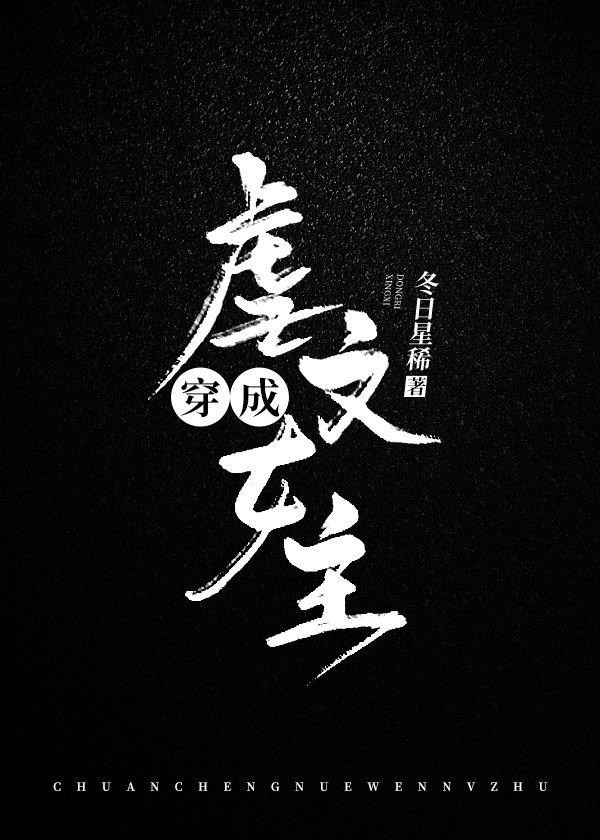 穿成
虐文
女主
冬日星稀 著
DONGRI
XINGXI
CHUANCHENGNUEWENNVZHU